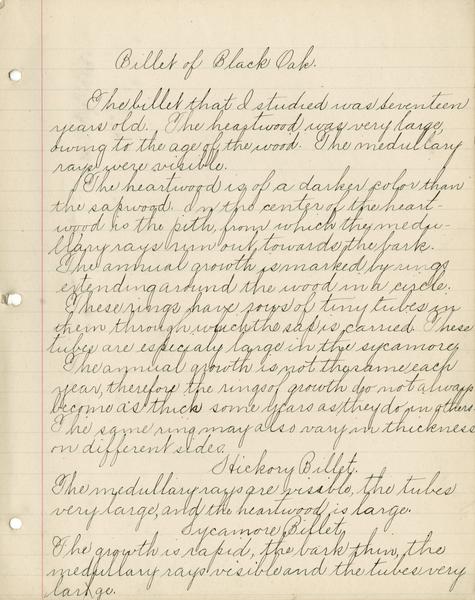 Billet of Black Oak.
The billet that I studied was seventeen
years old. The heartwood was very large,
owing to the age of the wood. The medullary
rays were visible.
The heartwood is of a darker color than
the sapwood. In the center of the heart-
wood is the pith, from which the medu-
llary rays run out towards the bark.
The annual growth is marked by rings
extending around the wood in a circle.
These rings have rows of tiny tubes in
them through which the sap is carried. These
tubes are especialy large in the sycamore.
The annual growth is not the same each
year, therefore the rings of growth do not always
become as thick some years as they do in others.
The same ring may also vary in thickness
on different sides.
Hickory Billet.
The medullary rays are visible, the tubes
very large, and the heartwood is large.
Sycamore Billet
The growth is rapid, the bark thin, the
medullary rays visible and the tubes very
large.